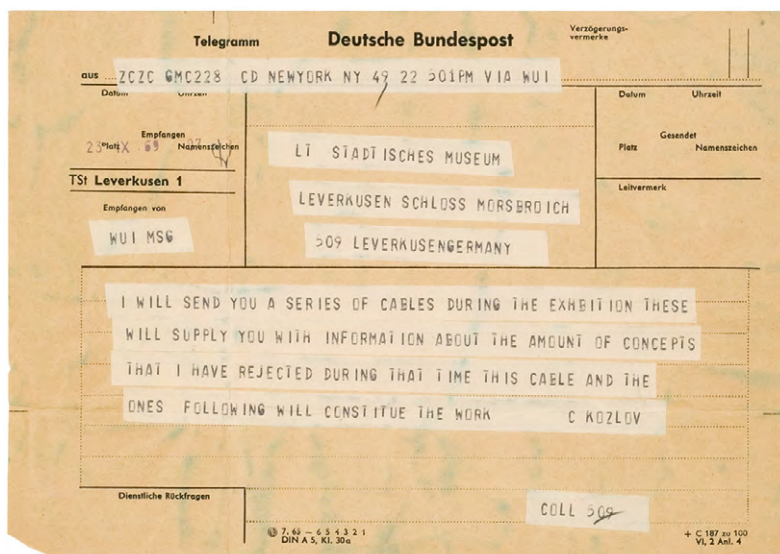 Telegramm
Deutsche Bundespost
Verzögerungs-
vermerke
aus ZCZC GMC228 CD NEWYORK NY 49 22 501PM VIA WUI
Datum Uhrzeit
Datum Uhrzeit
Empfangen
Platz Namenszeichen
23 IX. 69
Gesendet
Platz Namenszeichen
LT STADTISCHES MUSEUM
TSt Leverkusen 1
Leitvermerk
LEVERKUSEN SCHLOSS MORSBROICH
Empfangen von
WUI MSG
509 LEVERKUSENGERMANY
I WILL SEND YOU A SERIES OF CABLES DURING THE EXHBITION THESE
WILL SUPPLY YOU WITH INFORMATION ABOUT THE AMOUNT OF CONCEPTS
THAT I HAVE REJECTED DURING THAT TIME THIS CABLE AND THE
ONES FOLLOWING WILL CONSTITUE THE WORK C KOZLOV
Dienstliche Rückfragen
COLL 509
7. 65 — 6 5 4 3 2 1
DIN A 5, Kl. 30a
+ C 187 zu 100
VI, 2 Anl. 4